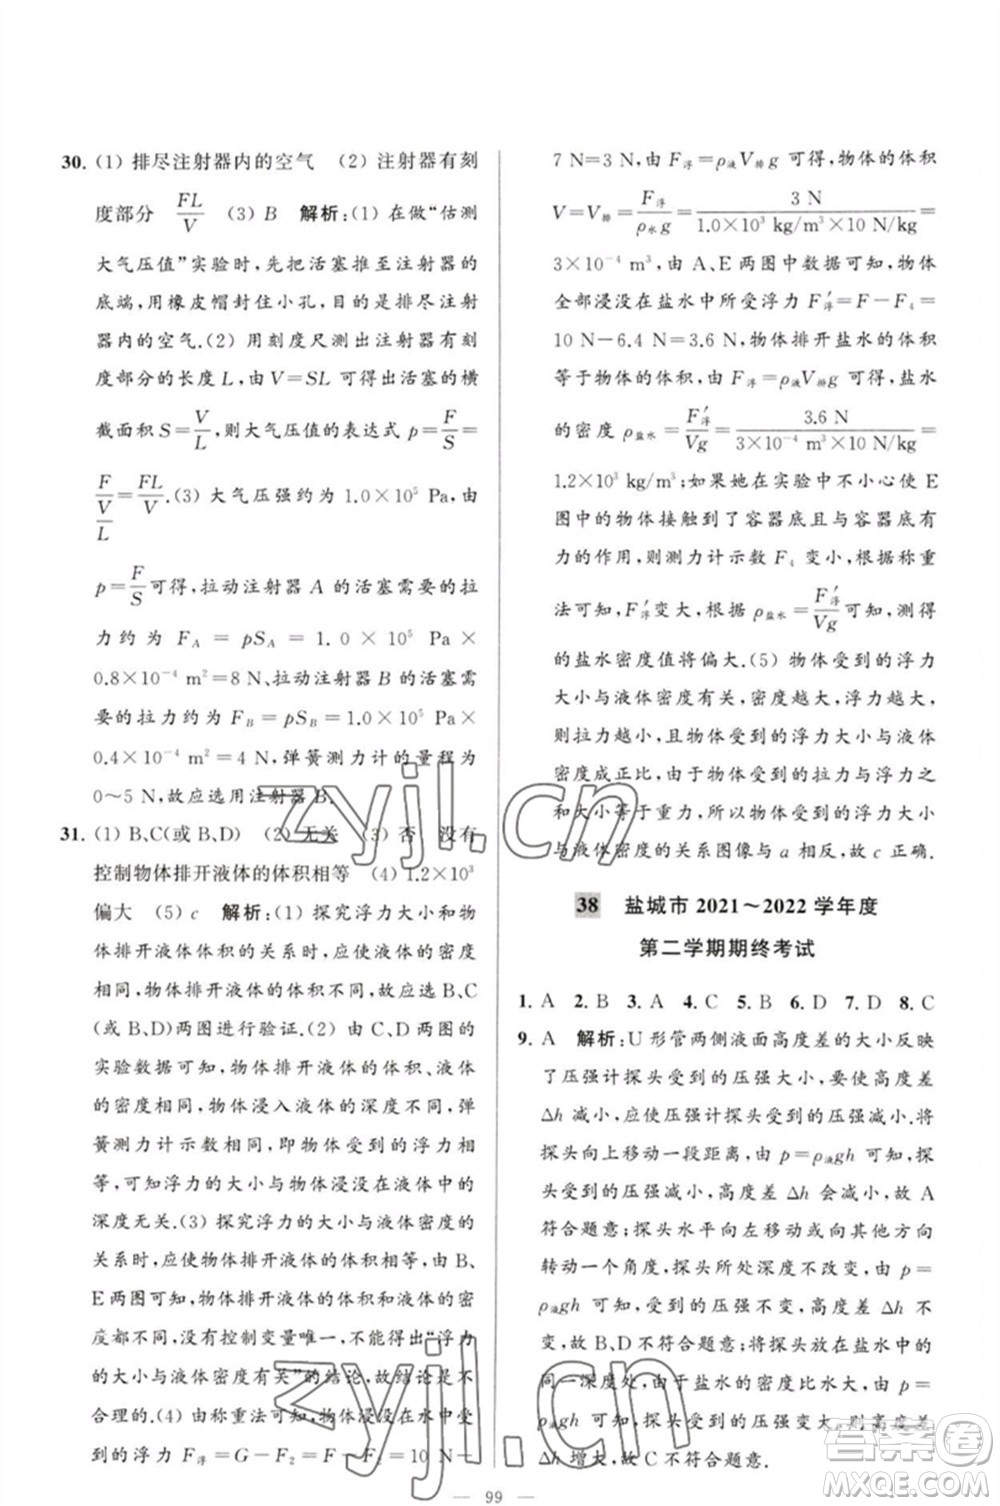 30. (1) 排尽注射器内的空气 (2) 注射器有刻
度部分 FL/V (3) B 解析:(1) 在做“估测
大气压值”实验时,先把活塞推至注射器的
底端,用橡皮帽封住小孔,目的是排尽注射
器内的空气.(2) 用刻度尺测出注射器有刻
度部分的长度 L,由 V=SL 可得出活塞的横
截面积 S=V/L,则大气压值的表达式 p=F/S=
F/(V/L)=FL/V.(3) 大气压强约为 1.0×10⁵ Pa,由
p=F/S可得,拉动注射器 A 的活塞需要的拉
力约为 F_A = pS_A = 1.0×10⁵ Pa×
0.8×10⁻⁴ m²=8 N,拉动注射器 B 的活塞需
要的拉力约为 F_B=pS_B=1.0×10⁵ Pa×
0.4×10⁻⁴ m²=4 N,弹簧测力计的量程为
0~5 N,故应选用注射器 B.
31. (1) B、C(或 B、D) (2) 无关 (3) 否 没有
控制物体排开液体的体积相等 (4) 1.2×10³
偏大 (5) c 解析:(1) 探究浮力大小与物
体排开液体体积的关系时,应使液体的密度
相同,物体排开液体的体积不同,应选用 B、C
(或 B、D) 两图进行验证.(2) 由 C、D 两图的
实验数据可知,物体排开液体的体积和液体
的密度相同,物体浸入液体的深度不同,弹
簧测力计示数相同,即物体受到的浮力相
等,可知浮力的大小与物体浸没在液体中的
深度无关.(3) 探究浮力的大小与液体密度的
关系时,应使物体排开液体的体积相同,由 B、
E 两图可知,物体排开液体的体积和液体的密
度都不同,没有控制变量唯一,不能得出“浮力
的大小与液体密度有关”的结论,故结论是不
合理的.(4) 由称重法可知,物体浸没在水中受
到的浮力 F浮=G-F₂=F-F₂=10 N-
7 N=3 N,由 F浮=ρ液V排g 可得,物体的体积
V=V排=F浮/ρ水g=3 N/(1.0×10³ kg/m³×10 N/kg)=
3×10⁻⁴ m³;由 A、E 两图中数据可知,物体
全部浸没在盐水中所受浮力 F′浮=F-F₄=
10 N-6.4 N=3.6 N,物体排开盐水的体积
等于物体的体积,由 F浮=ρ液V排g 可得,盐水
的密度 ρ盐水=F′浮/Vg=3.6 N/(3×10⁻⁴ m³×10 N/kg)=
1.2×10³ kg/m³;如果她在实验中不小心使 E
图中的物体接触到了容器底且与容器底有
力的作用,则测力计示数 F₄ 变小,根据称重
法可知,F′浮变大,根据 ρ盐水=F′浮/Vg可知,测得
的盐水密度值将偏大.(5) 物体受到的浮力
大小与液体密度有关,密度越大,浮力越大,
则拉力越小,且物体受到的浮力与液体
密度成正比,由于物体受到的拉力与浮力
之和大小等于重力,所以物体受到的浮力
与液体密度的关系图像与 a 相反,故 c 正确.
38 盐城市 2021~2022 学年度
第二学期期终考试
1. A 2. B 3. A 4. C 5. B 6. D 7. D 8. C
9. A 解析:U 形管两侧液面高度差的大小反映
了压强计探头受到的压强大小,要使高度差
Δh 减小,应使压强计探头受到的压强减小.将
探头向上移动一段距离,由 p=ρ液gh 可知,
探头受到的压强减小,高度差 Δh 会减小,故 A
符合题意;探头水平向左移动或向其他方向
转动时,探头所处深度不改变,由 p=
ρ液gh 可知,受到的压强不变,高度差 Δh 不
变,故 B、D 不符合题意;将探头放在盐水中的
同一深度处,由于盐水的密度比水大,由 p=
ρ液gh 可知,探头受到的压强变大,则高度差
Δh 增大,故 C 不符合题意.
99
zyjl.cn
zyjl.cn
答案圈
MXQE.COM